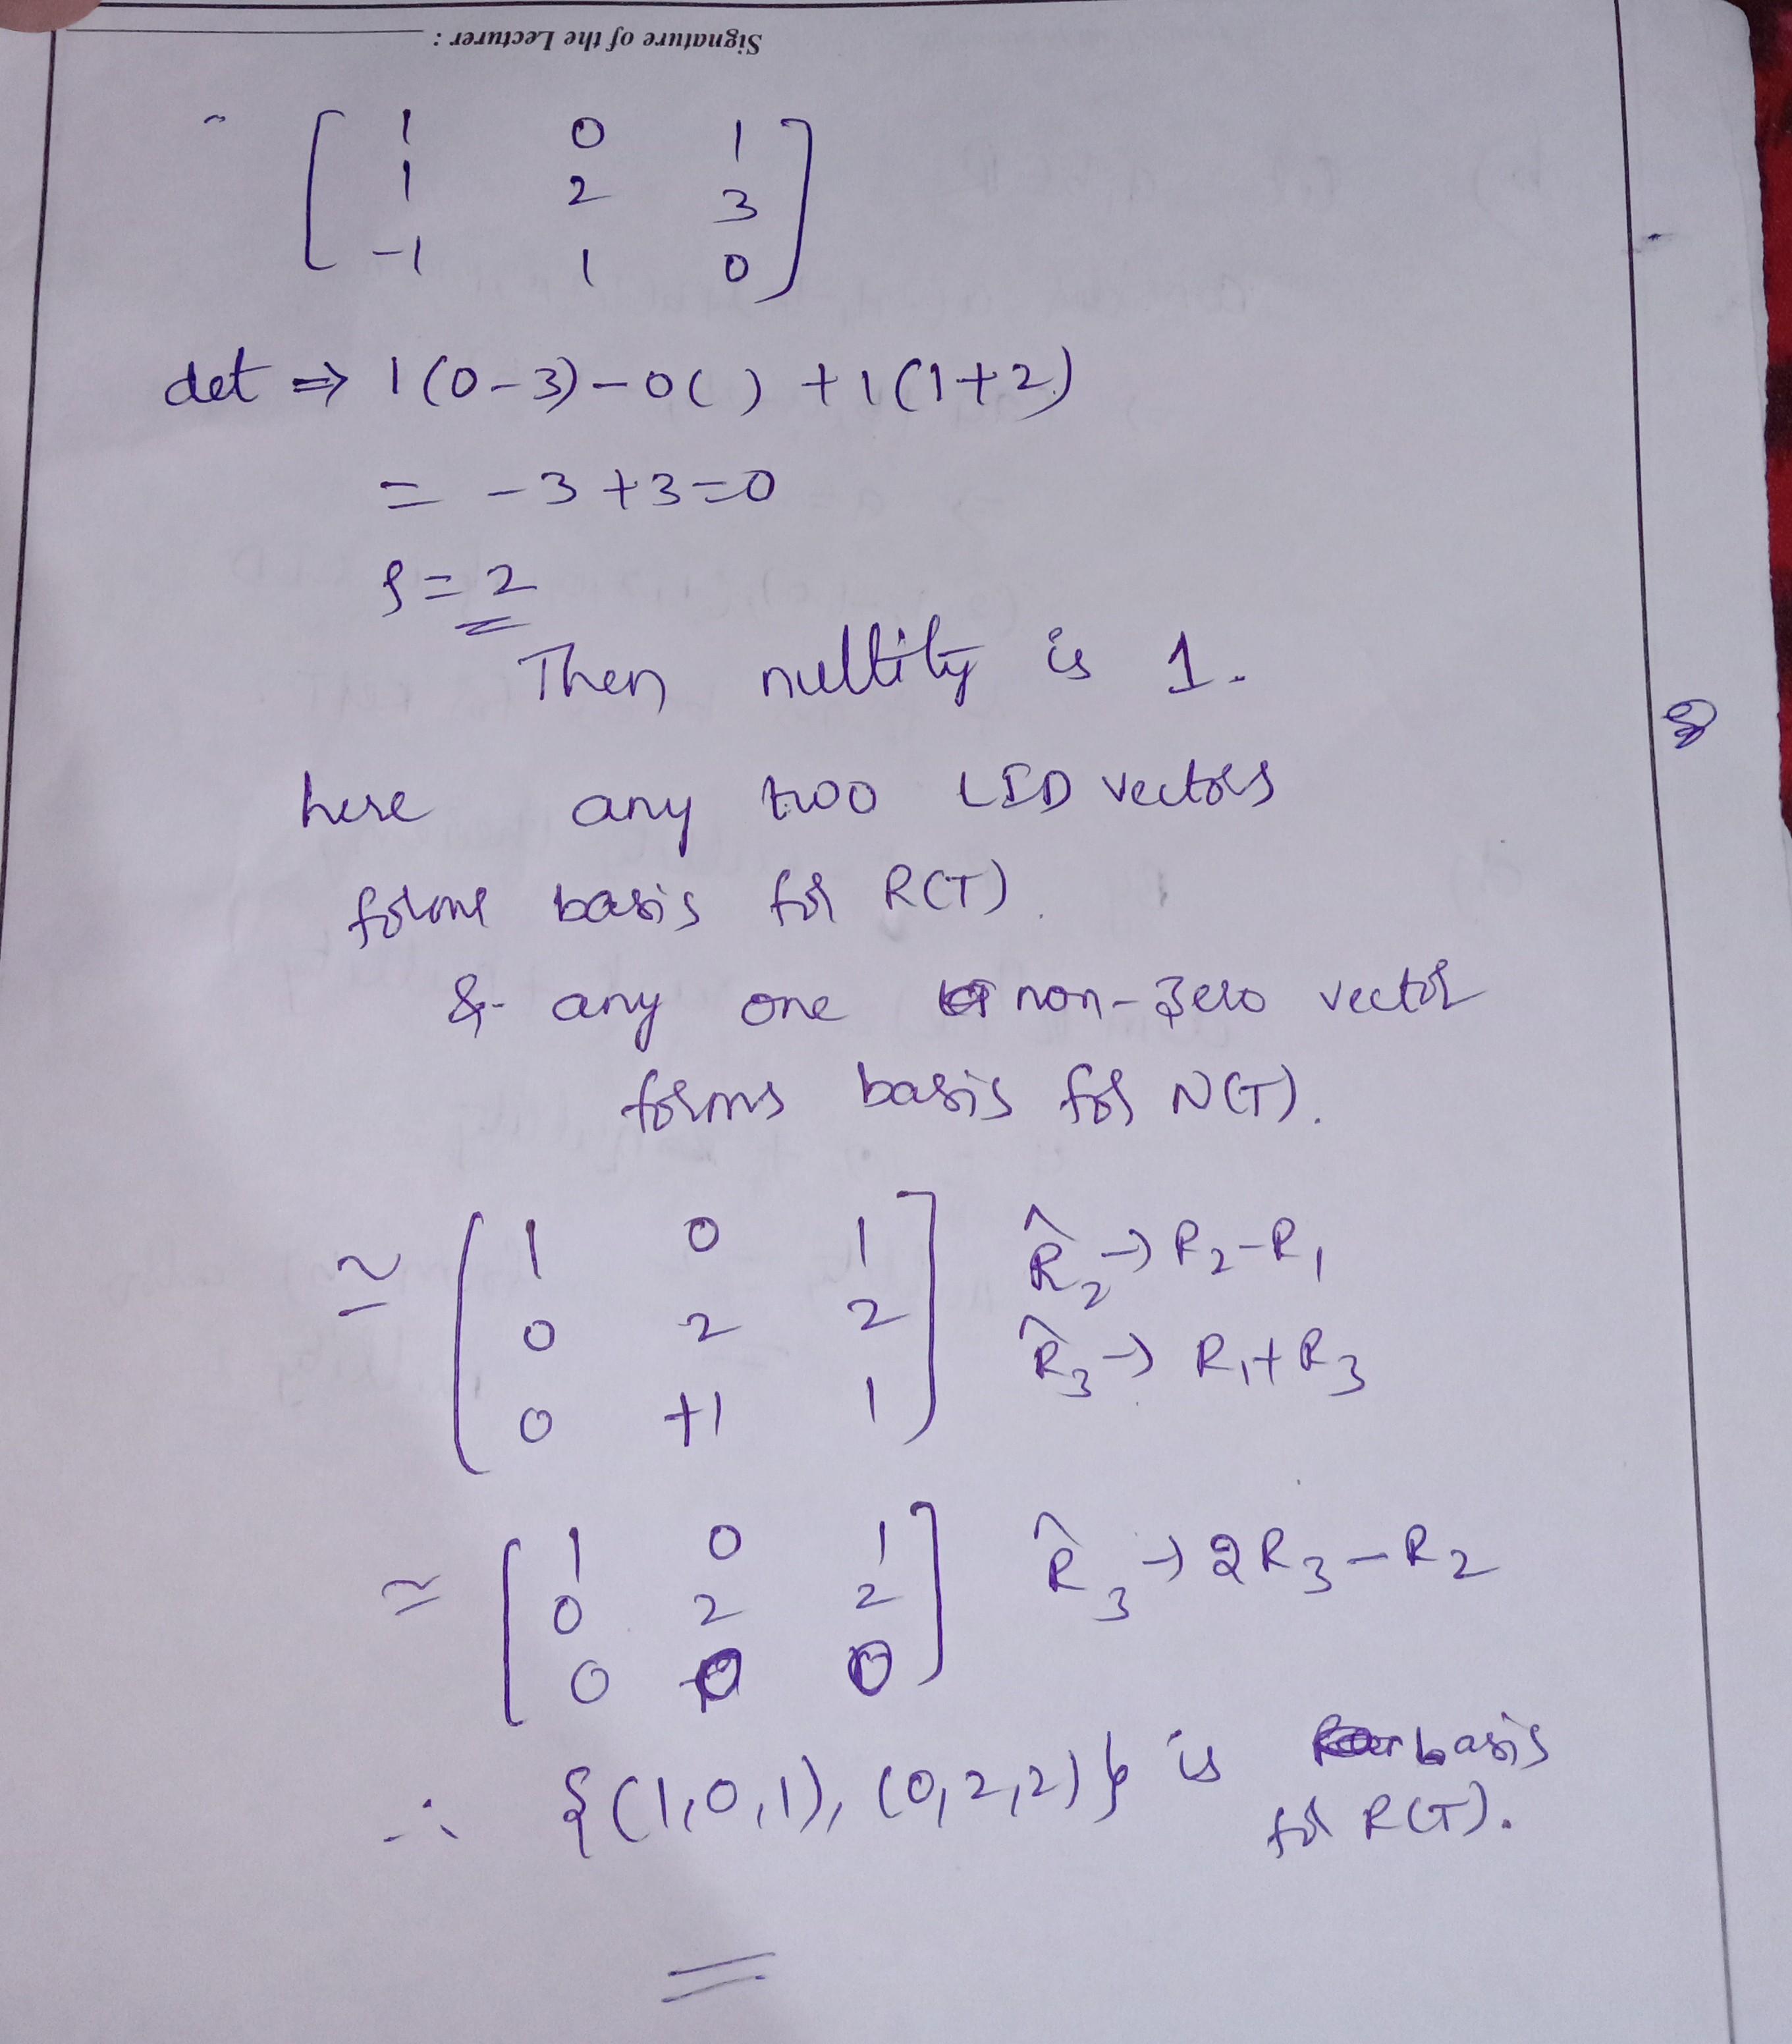 Signature of the Lecturer :
~ [ 1 0 1
1 2 3
-1 1 0 ]
det ⇒ 1(0-3)-0( ) +1(1+2)
= -3+3=0
ρ=2
Then nullity is 1.
here any two LID vectors
forms basis for R(T).
& any one non-zero vector
forms basis for N(T).
≃ [ 1 0 1 ] R̂₂→R₂-R₁
0 2 2 R̂₃→R₁+R₃
0 +1 1
≃ [ 1 0 1 ] R̂₃→2R₃-R₂
0 2 2
0 0 0
∴ {(1,0,1), (0,2,2)} is basis
for R(T).